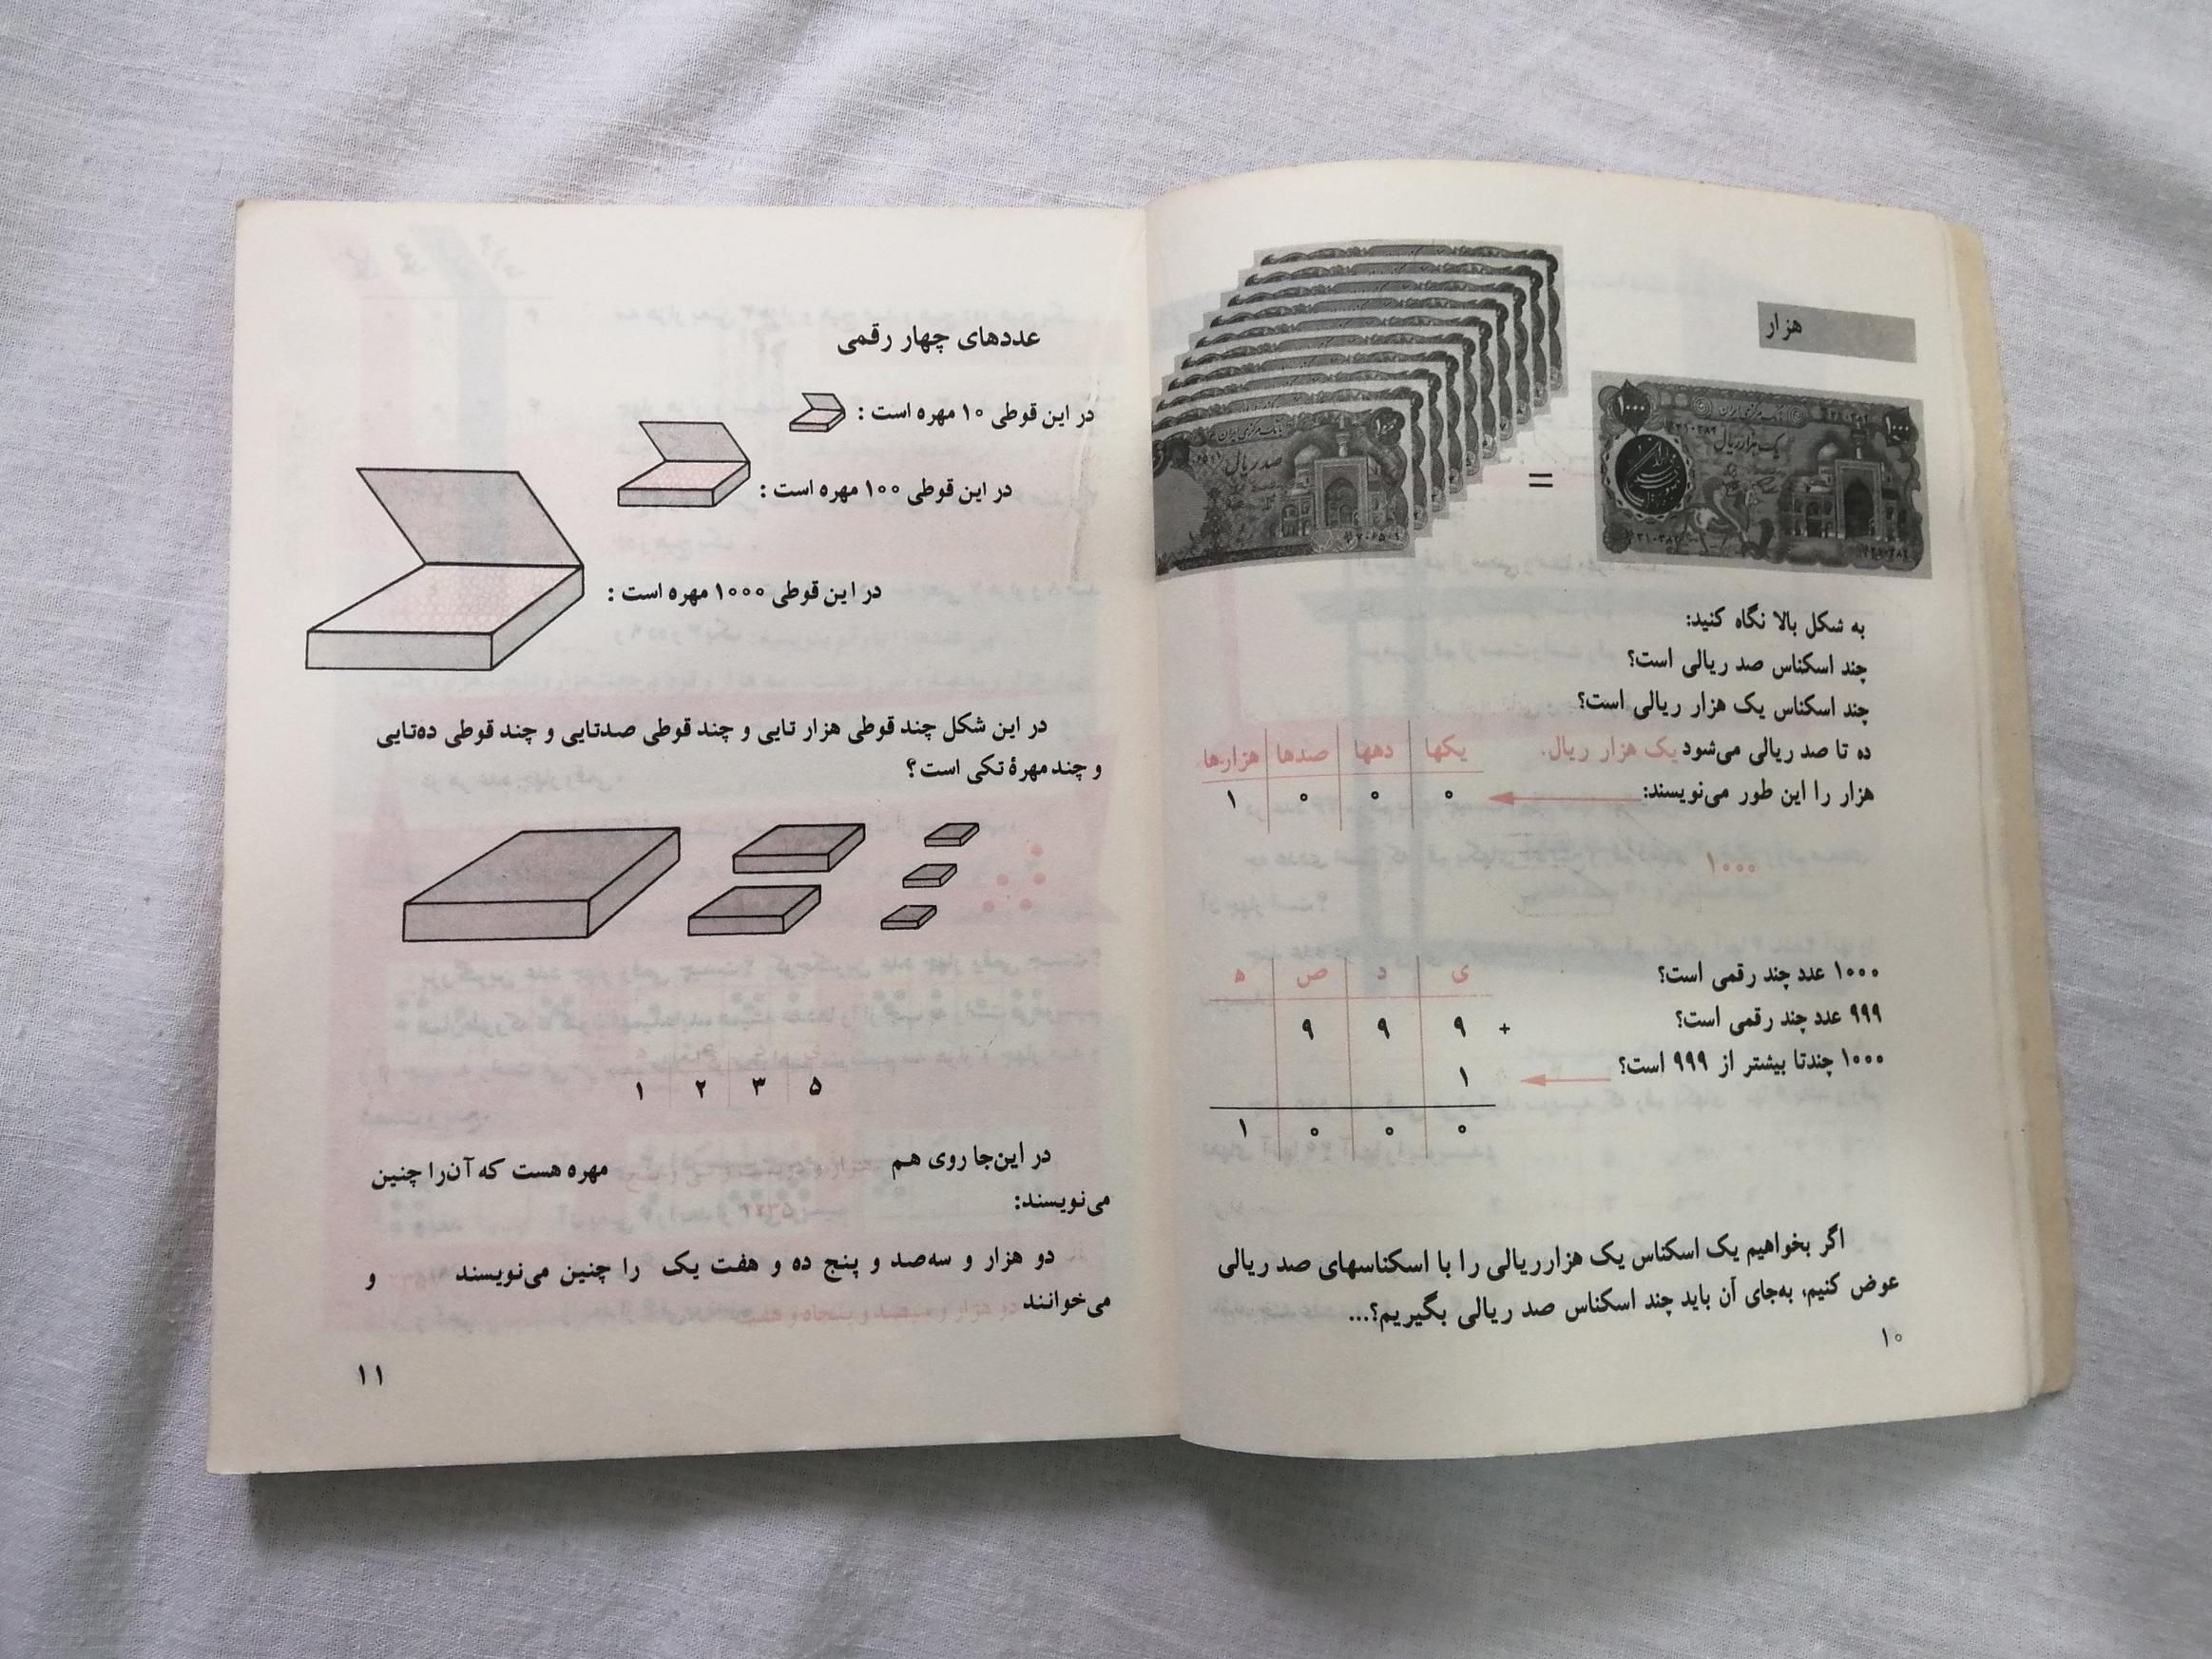 هزار
۱۰۰۰
۱۰۰۰
بانک مرکزی ایران
یک هزار ریال
بانک مرکزی ایران
صد ریال
=
به شکل بالا نگاه کنید:
چند اسکناس صد ریالی است؟
چند اسکناس یک هزار ریالی است؟
ده تا صد ریالی می‌شود یک هزار ریال.
هزار را این طور می‌نویسند:
هزارها صدها دهها یکها
۱ ۰ ۰ ۰
۱۰۰۰
۱۰۰۰ عدد چند رقمی است؟
۹۹۹ عدد چند رقمی است؟
۱۰۰۰ چندتا بیشتر از ۹۹۹ است؟
ه ص د ی
۹ ۹ ۹ +
۱
۱ ۰ ۰ ۰
اگر بخواهیم یک اسکناس یک هزارریالی را با اسکناسهای صد ریالی
عوض کنیم، به‌جای آن باید چند اسکناس صد ریالی بگیریم؟...
۱۰
عددهای چهار رقمی
در این قوطی ۱۰ مهره است :
در این قوطی ۱۰۰ مهره است :
در این قوطی ۱۰۰۰ مهره است :
در این شکل چند قوطی هزار تایی و چند قوطی صدتایی و چند قوطی ده‌تایی
و چند مهرهٔ تکی است؟
۱ ۲ ۳ ۵
در این‌جا روی هم مهره هست که آن‌را چنین
می‌نویسند:
دو هزار و سه‌صد و پنج ده و هفت یک را چنین می‌نویسند و
می‌خوانند
۱۱